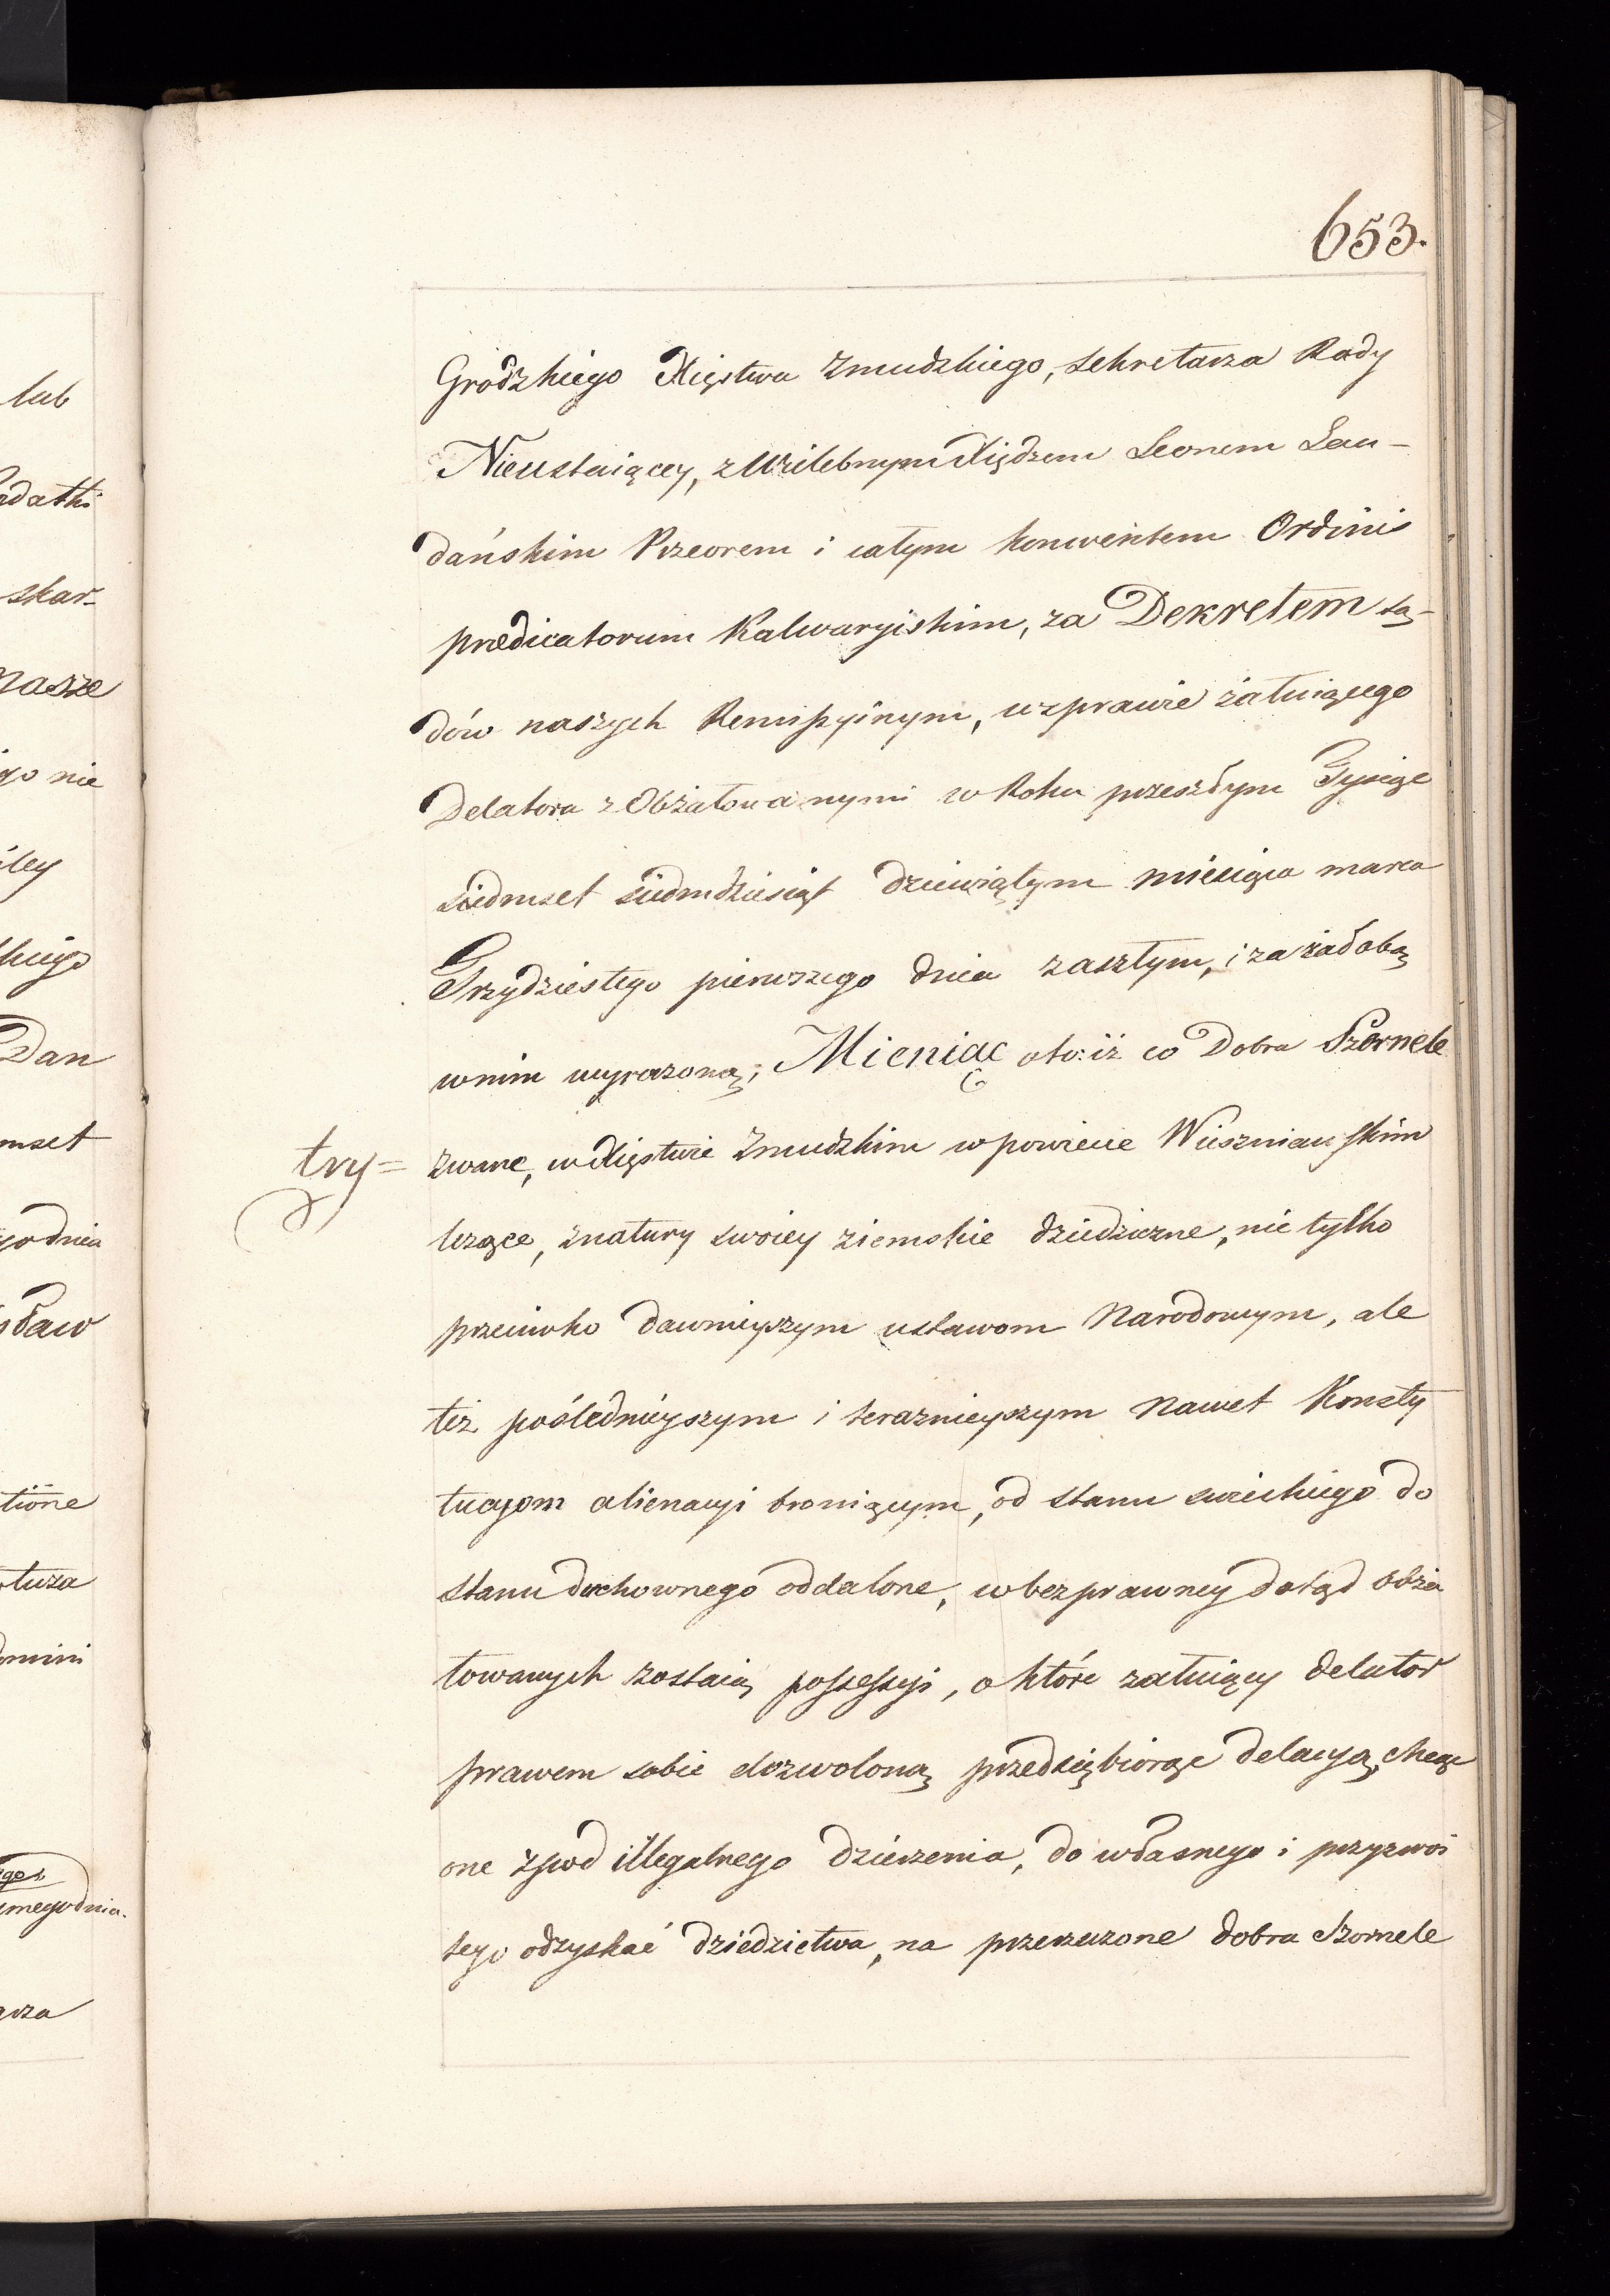 653.
Grodzkiego Xięstwa Zmudzkiego, Sekretarza Rady
Nieustaiącey, z Wielebnym Xiędzem Leonem Lau-
dańskim Przeorem i całym konwentem Ordinis
prædicatorum Kalwaryiskim, za Dekretem są-
dów naszych Remissyinym, w sprawie żałuiącego
Delatora z Obżałowanymi w Roku przeszłym Tysiąc
siedmset siedmdziesiąt dziewiątym miesiąca marca
Trzydziestego pierwszego dnia zaszłym, i za żałobą
w nim wyrażoną; Mieniąc oto: iż co Dobra Szornele
try= zwane, w Xięstwie Zmudzkim w powiecie Wieszniańskim
leżące, z natury swoiey ziemskie dziedziczne, nie tylko
przeciwko dawnieyszym ustawom Narodowym, ale
też pośledniéyszym i teraznieyszym nawet Konsty
tucyom alienacyi broniącym, od stanu swieckiego do
stanu duchownego oddalone, w bezprawney dotąd obża
łowanych zostaią possessyi, o które żałuiący delator
prawem sobie dozwoloną przedsiębiorąc delacyą, chcąc
one zpod illegalnego dzierżenia, do własnego i przyzwoi
tego odzyskać dziedzictwa, na przerzeczone dobra Szornele
lub
skar-
nasze
go nie
Dan